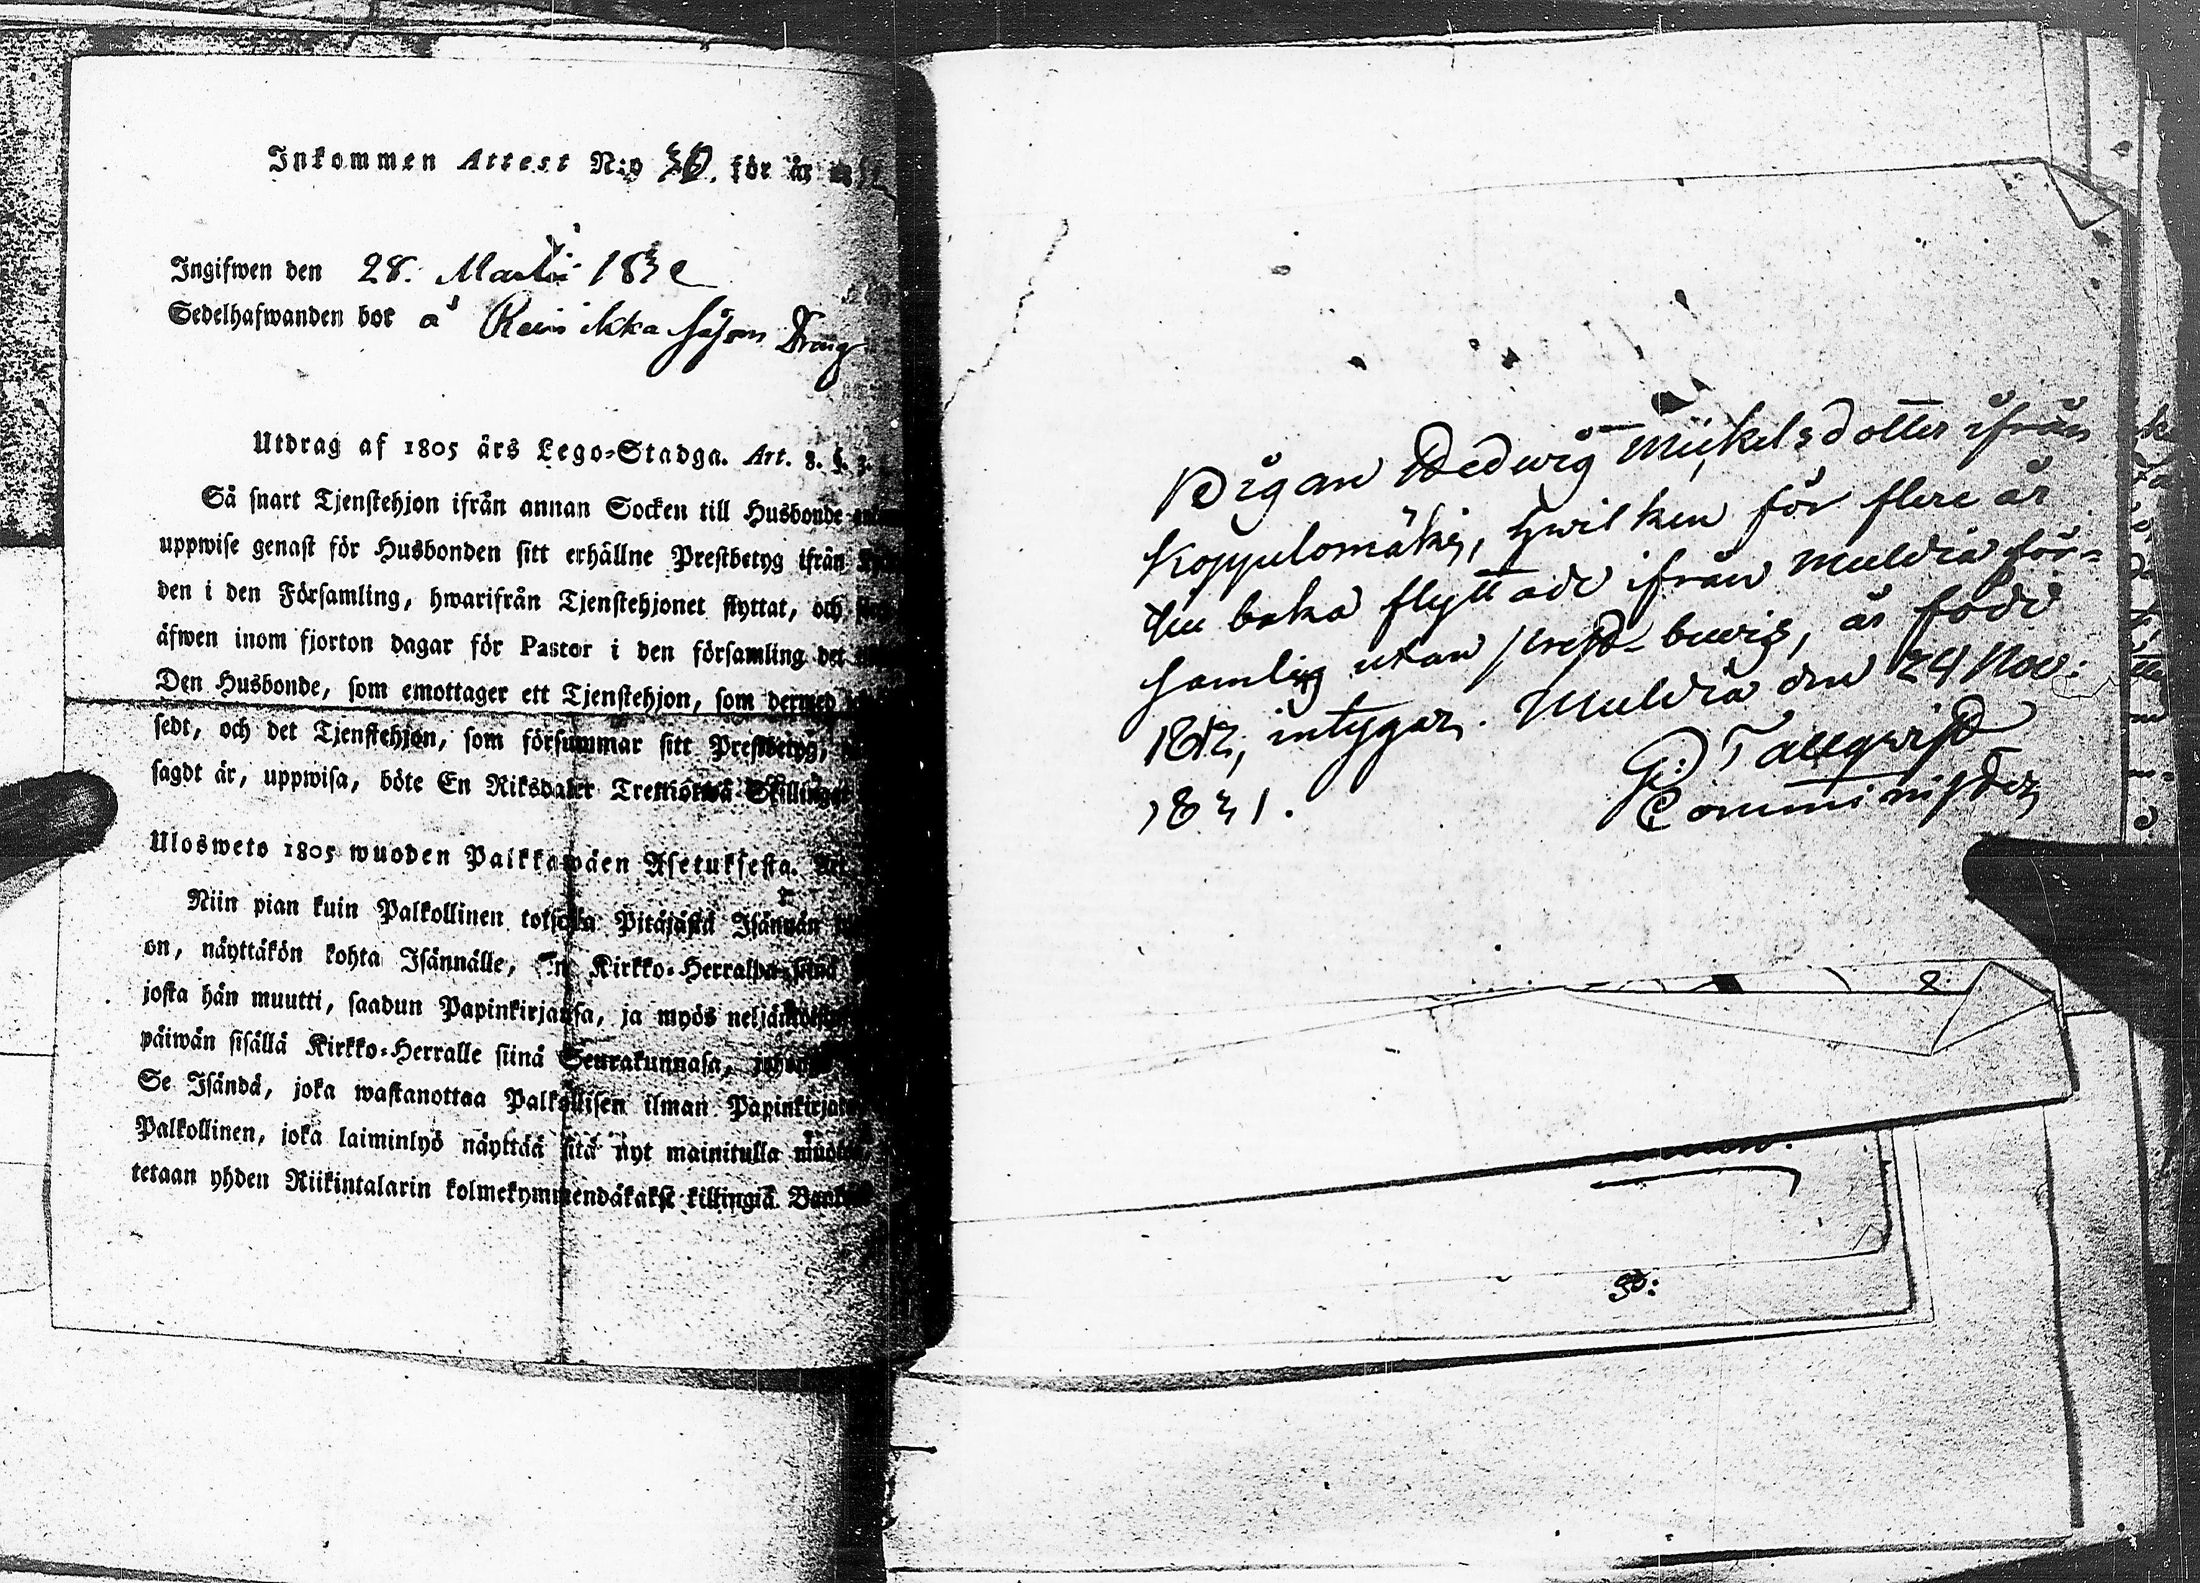 Inkommen Attest N:o 30. för år
Ingifwen den 28. Martii 1832
Sedelhafwanden bor å Reinikka såsom Dräng
Utdrag af 1805 års Lego-Stadga. Art. 8. §. 3.
Så snart Tjenstehjon ifrån annan Socken till Husbonde
uppwise genast för Husbonden sitt erhållne Prestbetyg ifrån
den i den Församling, hwarifrån Tjenstehjonet flyttat, och
äfwen inom fjorton dagar för Pastor i den församling det
Den Husbonde, som emottager ett Tjenstehjon, som dermed
sedt, och det Tjenstehjon, som försummar sitt Prestbetyg,
sagdt är, uppwisa, böte En Riksdaler Trettiotwå Skillingar
Ulosweto 1805 wuoden Palkkawäen Asetuksesta. Art.
Niin pian kuin Palkollinen toisesta Pitäjästä Isännän
on, näyttäkön kohta Isännälle, Kirkko-Herralda siinä
josta hän muutti, saadun Papinkirjansa, ja myös neljäntoista
päiwän sisällä Kirkko-Herralle siinä Seurakunnasa,
Se Isändä, joka wastanottaa Palkollisen ilman Papinkirjata
Palkollinen, joka laiminlyö näyttää sitä nyt mainitulla
tetaan yhden Riikintalarin kolmekymmendäkaksi killingiä Banko
Pigan Hedwig Mickelsdotter ifrån
Koppulomäki, hwilken för flere år
tillbaka flyttade ifrån Muldia för=
samling utan prest-bewis, är född
1812, intygar. Muldia den 24 Nov:
1831.
G: Tallqwist
Comminister